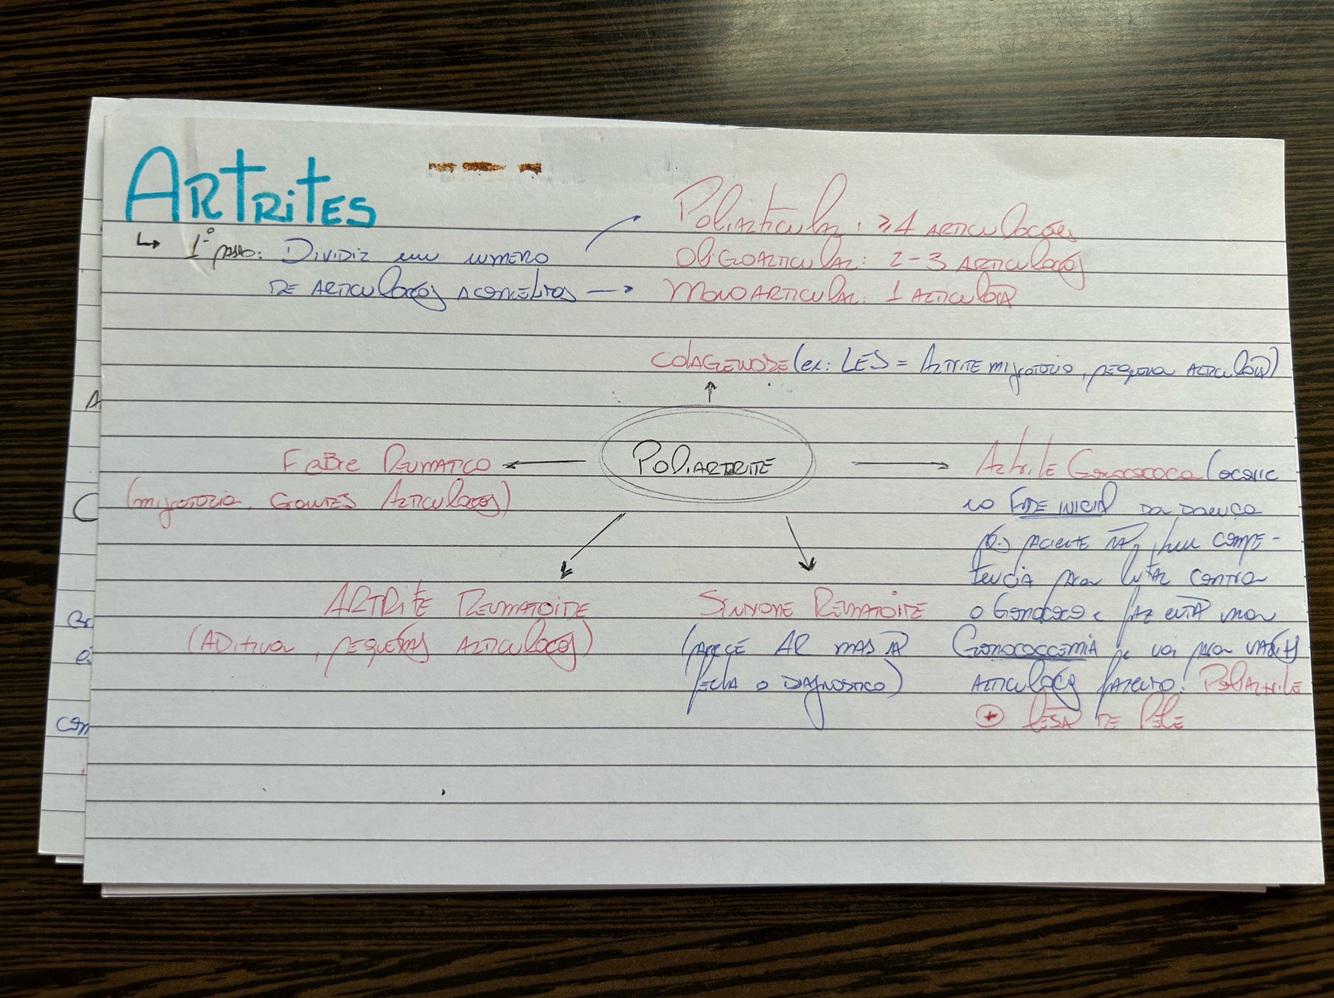 ARTRITES
↳ 1º passo: Dividir em numero
de articulações acometidas →
Poliarticular: ≥4 articulações
Oligoarticular: 2-3 articulações
Monoarticular: 1 articulação
Colagenose (ex: LES = Artrite migratória, pequena articulação)
Poliartrite
Febre Reumatico
(migratoria. Grandes Articulações)
Artrite Reumatoide
(Aditiva, pequenas articulações)
Sindrome Reumatoide
(parece AR mas ñ
fecha o diagnostico)
Artrite Gonococica (ocorre
na fase inicial da doença
pq o paciente não tem compe-
tencia para lutar contra
o Gonococo e faz então uma
Gonococcemia e vai para várias
articulações fazendo: Poliartrite
⊕ lesão de Pele
A
C
com